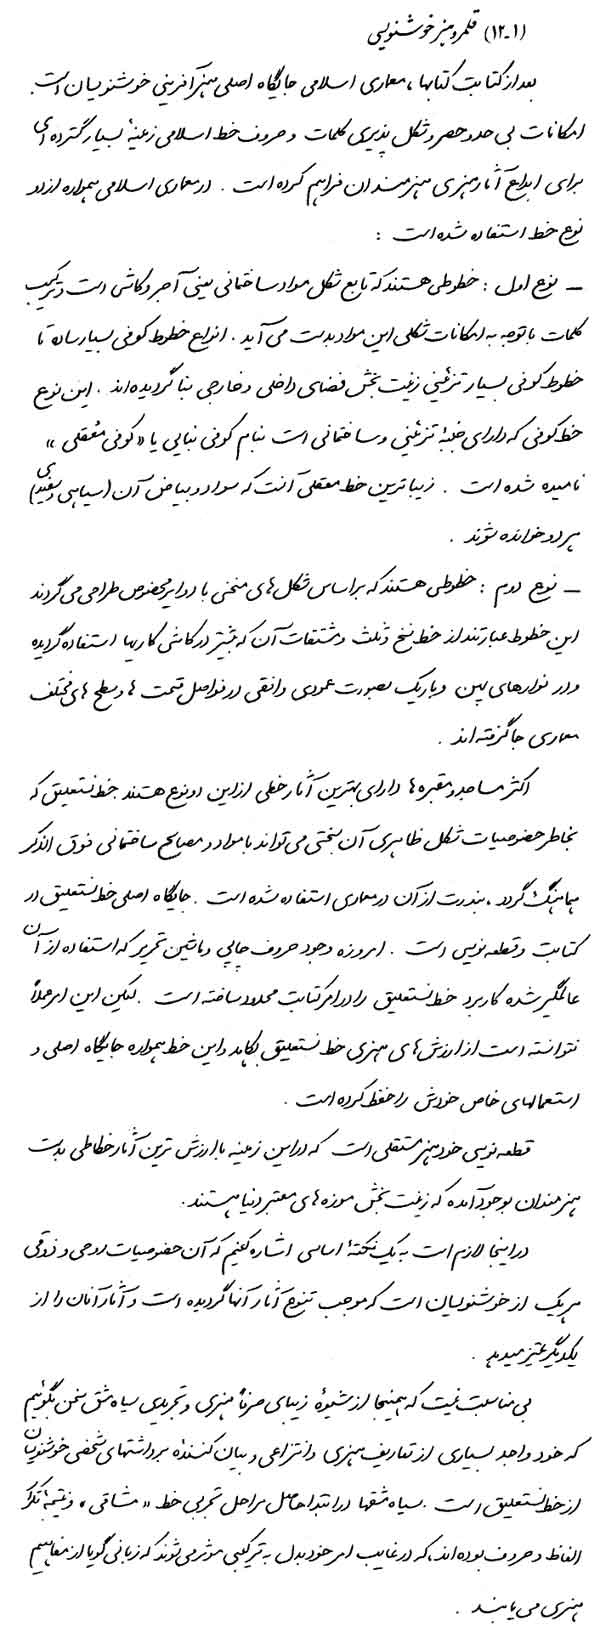 (۱۲-۱) قلمرو هنر خوشنویسی
بعد از کتابت کتابها، معماری اسلامی جایگاه اصلی هنرآفرینی خوشنویسان است.
امکانات بی حد و حصر و شکل پذیری کلمات و حروف خط اسلامی زمینهٔ بسیار گسترده ای
برای ابداع آثار هنری هنرمندان فراهم کرده است. در معماری اسلامی همواره از دو
نوع خط استفاده شده است :
_ نوع اول : خطوطی هستند که تابع شکل مواد ساختمانی یعنی آجر و کاشی است و ترکیب
کلمات با توجه به امکانات شکلی این مواد بدست می آید. انواع خطوط کوفی بسیار ساده تا
خطوط کوفی بسیار تزئینی زینت بخش فضای داخلی و خارجی بنا گردیده اند. این نوع
خط کوفی که دارای جنبهٔ تزئینی و ساختمانی است بنام کوفی بنایی یا «کوفی مَعقلی»
نامیده شده است. زیباترین خط معقلی آنست که سواد و بیاض آن (سیاهی و سفیدی)
هر دو خوانده شوند.
_ نوع دوم : خطوطی هستند که بر اساس شکل های منحنی با دوایر مخصوص طراحی می گردند
این خطوط عبارتند از خط نسخ و ثلث و مشتقات آن که بیشتر در کاشی کاریها استفاده گردیده
و در نوارهای پهن و باریک بصورت عمودی و افقی در فواصل قسمت ها و سطح های مختلف
معماری جا گرفته اند.
اکثر مساجد و مقبره ها دارای بهترین آثار خطی از این دو نوع هستند خط نستعلیق که
بخاطر خصوصیات شکل ظاهری آن بسختی می تواند با مواد و مصالح ساختمانی فوق الذکر
هماهنگ گردد، بندرت از آن در معماری استفاده شده است. جایگاه اصلی خط نستعلیق در
کتابت و قطعه نویسی است. امروزه وجود حروف چاپی و ماشین تحریر که استفاده از آن
عالمگیر شده کاربرد خط نستعلیق را در امر کتابت محدود ساخته است. لیکن این امر عملاً
نتوانسته است از ارزش های هنری خط نستعلیق بکاهد و این خط همواره جایگاه اصلی و
استعمالهای خاص خودش را حفظ کرده است.
قطعه نویسی خود هنر مستقلی است که در این زمینه با ارزش ترین آثار خطاطی بدست
هنرمندان بوجود آمده که زینت بخش موزه های معتبر دنیا هستند.
در اینجا لازم است به یک نکتهٔ اساسی اشاره کنیم که آن خصوصیات روحی و ذوقی
هر یک از خوشنویسان است که موجب تنوع آثار آنها گردیده است و آثار آنان را از
یکدیگر تمیز میدهد.
بی مناسبت نیست که همینجا از شیوهٔ زیبای صرفاً هنری و تجریدی سیاه مشق سخن بگوئیم
که خود واجد بسیاری از تعاریف هنری و انتزاعی و بیان کنندهٔ برداشتهای شخصی خوشنویسان
از خط نستعلیق است. سیاه مشقها در ابتدا حاصل مراحل تجربی خط «مشاقی» و نتیجهٔ تکرار
الفاظ و حروف بوده اند، که در غایب امر خود بدل به ترکیبی موثر می شوند که زبانی گویا از مفاهیم
هنری می یابند.